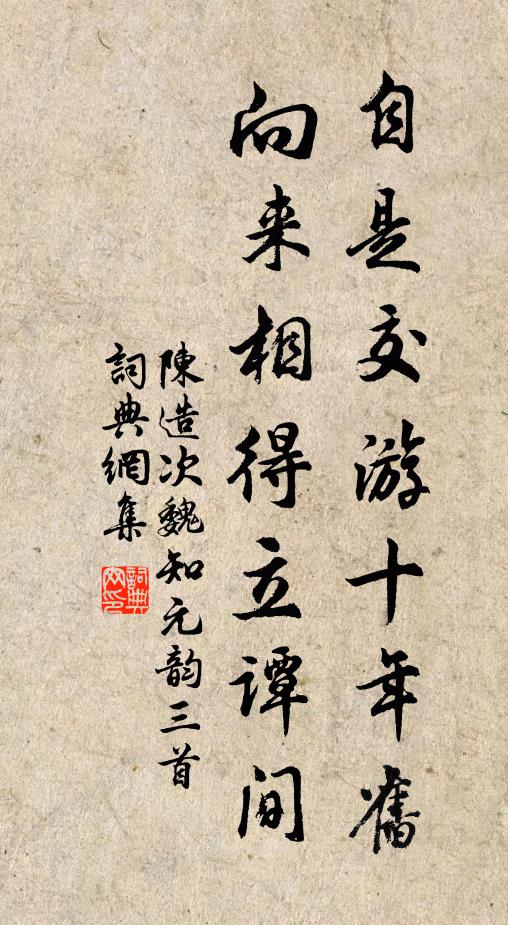 自是交游十年舊
向来相得立谭间
陳造次魏知元韵三首
詞典網集
詞典網印